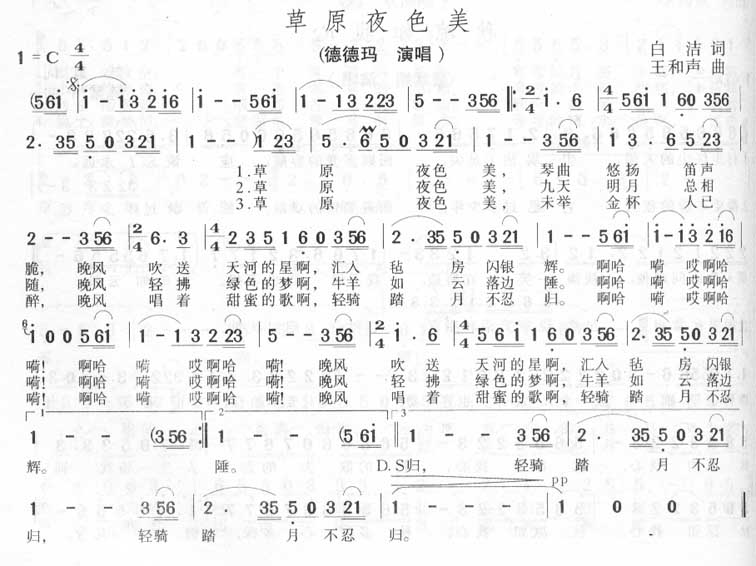 草原夜色美
(德德玛 演唱)
1=C 4/4 2/4
白洁 词
王和声 曲
(5 6 1 | 1 - 1 3 2 1 6 | 1 - - 5 6 1 | 1 - 1 3 2 2 3 | 5 - - 3 5 6 ‖: 2/4 1 . 6 | 4/4 5 6 1 1 6 0 3 5 6 |
2 . 3 5 5 0 3 2 1 | 1 - - 1) 2 3 | 5 . 6 5 0 3 2 | 1 - - 3 5 6 | 1 . 3 . 6 5 2 3 |
1.草 原 夜色 美, 琴曲 悠扬 笛声
2.草 原 夜色 美, 九天 明月 总相
3.草 原 夜色 美, 未举 金杯 人已
2 - - 3 5 6 | 2/4 6 . 3 | 4/4 2 3 5 1 6 0 3 5 6 | 2 . 3 5 5 0 3 2 1 | 1 - - 5 6 1 | 1 - 1 3 2 1 6 |
脆, 晚风 吹送 天河的星啊, 汇入 毡 房 闪银 辉。 啊哈 嗬 哎啊哈
随, 晚风 轻拂 绿色的梦啊, 牛羊 如 云 落边 陲。 啊哈 嗬 哎啊哈
醉, 晚风 唱着 甜蜜的歌啊, 轻骑 踏 月 不忍 归。 啊哈 嗬 哎啊哈
6 1 0 0 5 6 1 | 1 - 1 3 2 2 3 | 5 - - 3 5 6 | 2/4 1 . 6 | 4/4 5 6 1 1 6 0 3 5 6 | 2 . 3 5 5 0 3 2 1 |
嗬! 啊哈 嗬 哎啊哈 嗬! 晚风 吹送 天河的星啊, 汇入 毡 房 闪银
嗬! 啊哈 嗬 哎啊哈 嗬! 晚风 轻拂 绿色的梦啊, 牛羊 如 云 落边
嗬! 啊哈 嗬 哎啊哈 嗬! 晚风 唱着 甜蜜的歌啊, 轻骑 踏 月 不忍
1 2 3
1 - - (3 5 6 :‖ 1 - - (5 6 1 | 1 - - 3 5 6 | 2 . 3 5 5 0 3 2 1 |
辉。 陲。 D.S归, 轻骑 踏 月 不忍
pp
1 - - 3 5 6 | 2 . 3 5 5 0 3 2 1 | 1 - - - | 1 - - - | 1 0 0 0 ‖
归, 轻骑 踏 月 不忍 归。